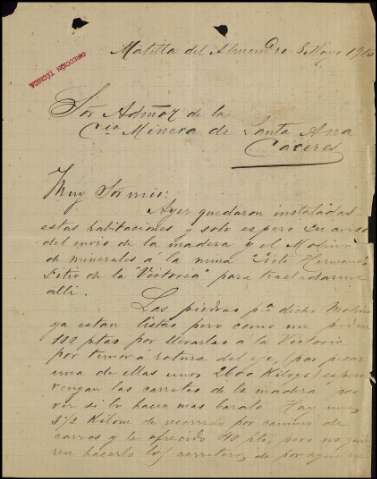 Matilla del Almendro 8 Mayo 19
DIRECCIÓN TÉCNICA
Sor Admor de la
Cia Minera de Santa Ana
Caceres
Muy Sr mio:
Ayer quedaron instaladas
estas habitaciones y solo espero su aviso
del envio de la madera y el Molino
de minerales á la mina "Siete Hermanos
Sitio de la Victoria" para trasladarme
alli.
Las piedras pa dicho Molino
ya estan listas pero como me piden
112 ptas por llevarlas a la Victoria
por temor á rotura del eje, (por pesar
una de ellas unos 2600 Kilogs)
vengan las carretas de la madera por
ver si lo hacen mas barato. Hay unos
3 1/2 Kilom de recorrido por camino de
carros y he ofrecido 40 pts, pero no quie
ren hacerlo los carreteros de por aqui